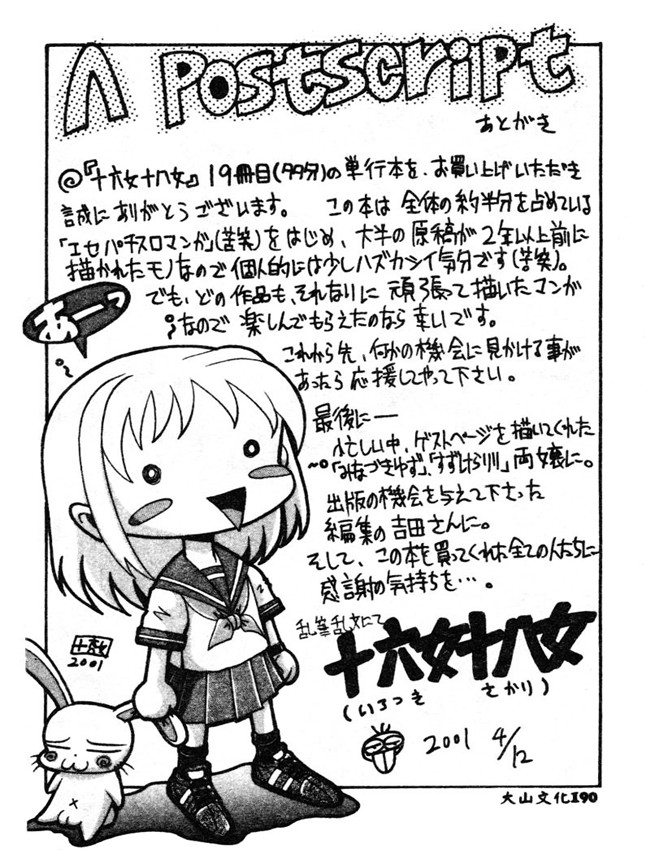 A Postscript
あとがき
@『十六女十八女』19冊目(タタ分)の単行本を、お買い上げいただき
誠にありがとうございます。 この本は 全体の約半分を占めている
「エセパチスロマンガ」(苦笑)をはじめ、大半の原稿が2年以上前に
描かれたモノなので個人的には少しハズカシイ気分です(苦笑)。
でも、どの作品も、それなりに 頑張って描いたマンガ
なので 楽しんでもらえたのなら 幸いです。
これから先、何かの機会に見かける事が
あったら応援してやって下さい。
あーっ
最後に——
忙しい中、ゲストページを描いてくれた
「みなづきゆず」、「すずしろ」両嬢に。
出版の機会を与えて下さった
編集の吉田さんに。
そして、この本を買ってくれた全ての人たちに
感謝の気持ちを…。
乱筆乱文にて
十六女十八女
(いろつき さかり)
2001 4/12
2001
大山文化I90